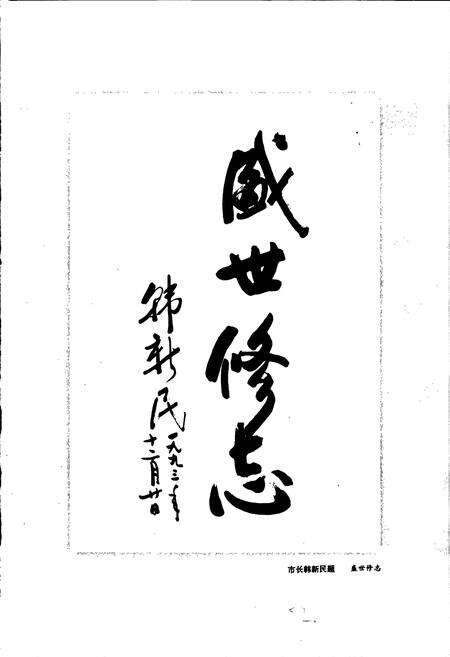 盛世修志
韩新民
一九九三年
十二月廿日
市长韩新民题 盛世修志